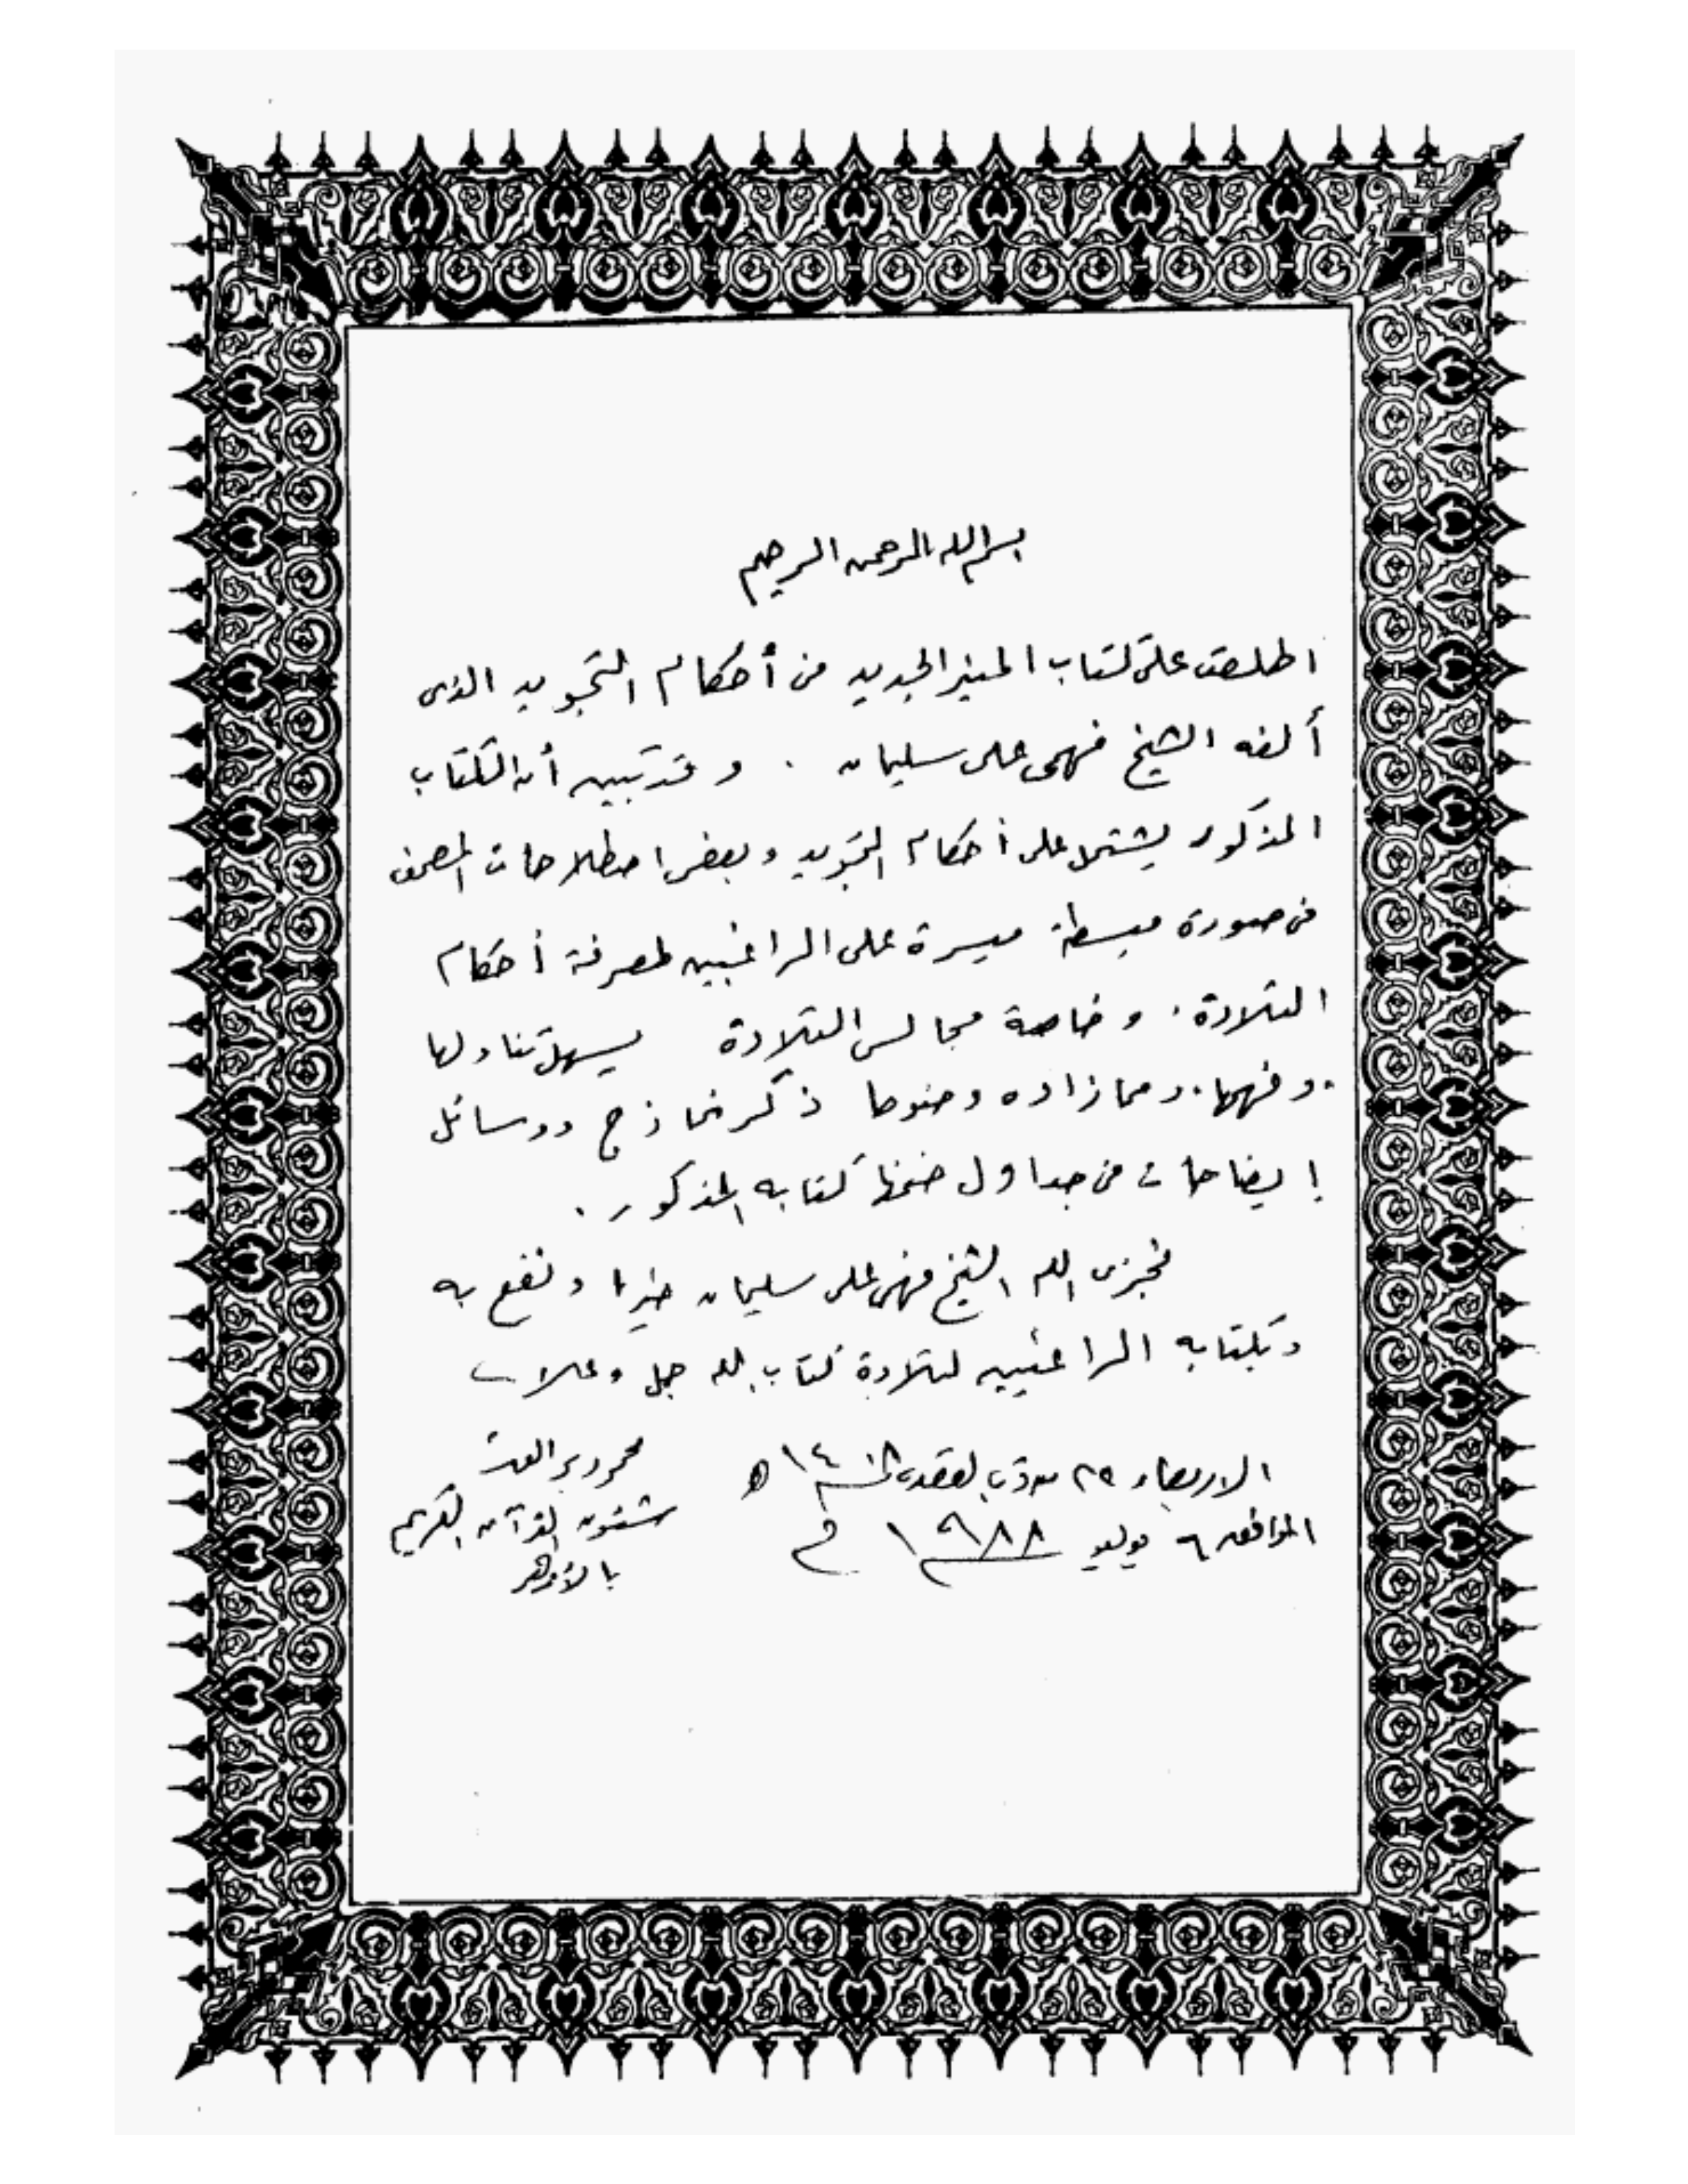 بسم الله الرحمن الرحيم
اطلعت على كتاب المنير الجديد فى أحكام التجويد الذى
ألفه الشيخ فهمى على سليمان . وقد تبين أن الكتاب
المذكور يشتمل على أحكام التجويد وبعض اصطلاحات المصحف
فى صورة مبسطة ميسرة على الراغبين لمعرفة أحكام
التلاوة، وخاصة مجالس التلاوة يسهل تناولها
وفهمها. ومما زاده وضوحا ذكر نماذج ووسائل
إيضاحات فى جداول ضمنها كتابه المذكور .
فجزى الله الشيخ فهمى على سليمان خيرا ونفع به
وبكتابه الراغبين لتلاوة كتاب الله جل وعلا
الاربعاء ٢٢ من ذى القعدة ١٤٠٨ ه
الموافق ٦ يوليو ١٩٨٨ م
محمود
شئون القرآن الكريم
بالأزهر